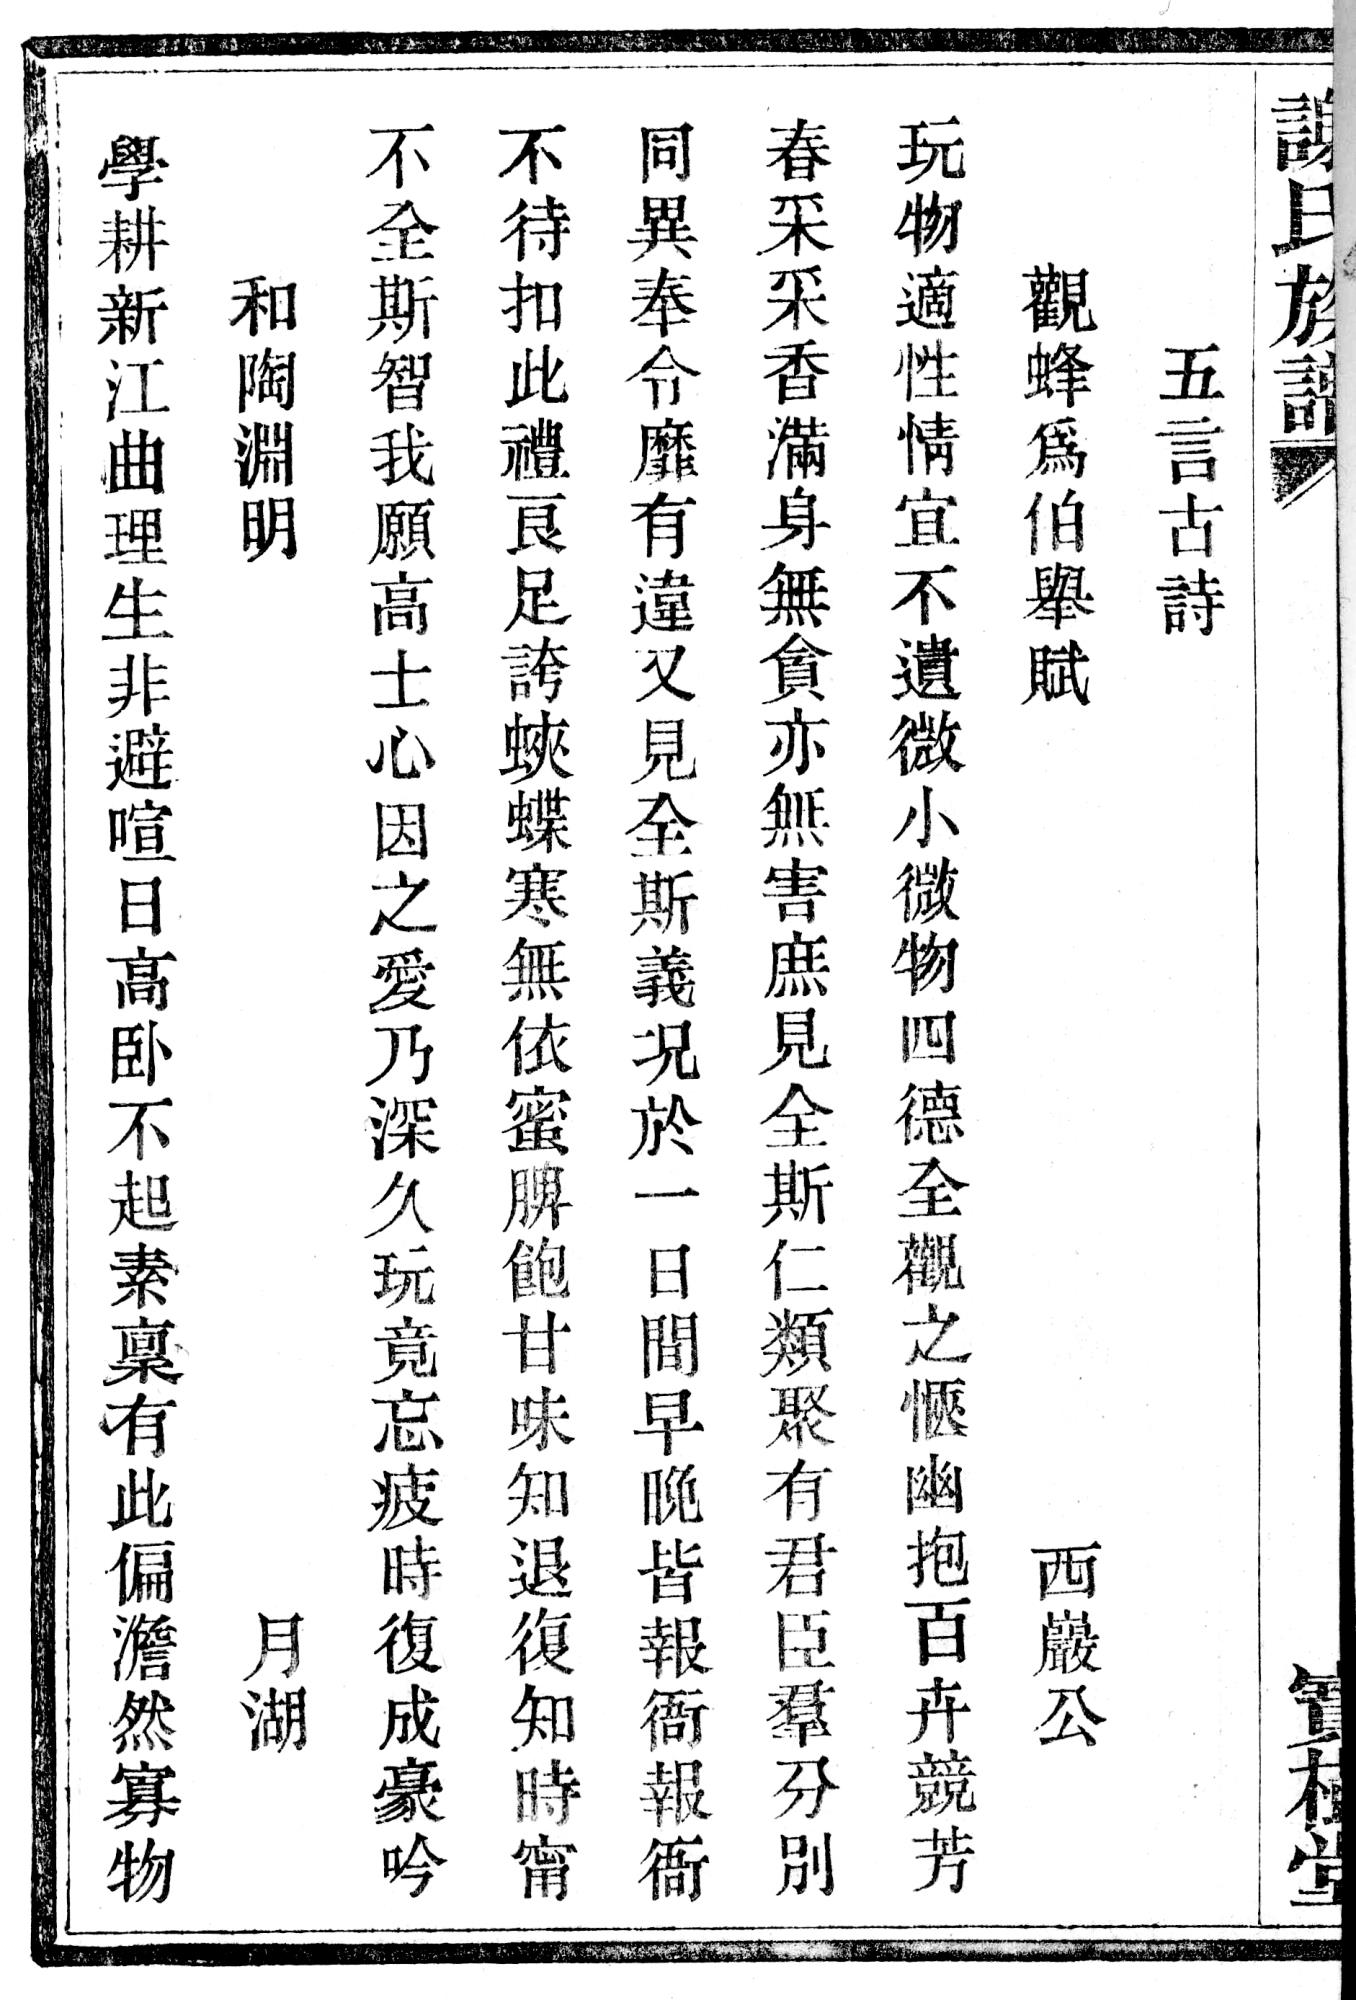 謝氏族譜
寶樹堂
五言古詩
觀蜂爲伯舉賦 西巖公
玩物適性情宜不遺微小微物四德全觀之愜幽抱百卉競芳
春采采香滿身無貪亦無害庶見全斯仁類聚有君臣羣分別
同異奉令靡有違又見全斯義況於一日間早晚皆報衙報衙
不待扣此禮良足誇蛺蝶寒無依蜜脾飽甘味知退復知時甯
不全斯智我願高士心因之愛乃深久玩竟忘疲時復成豪吟
和陶淵明 月湖
學耕新江曲理生非避喧日高卧不起素稟有此偏澹然寡物